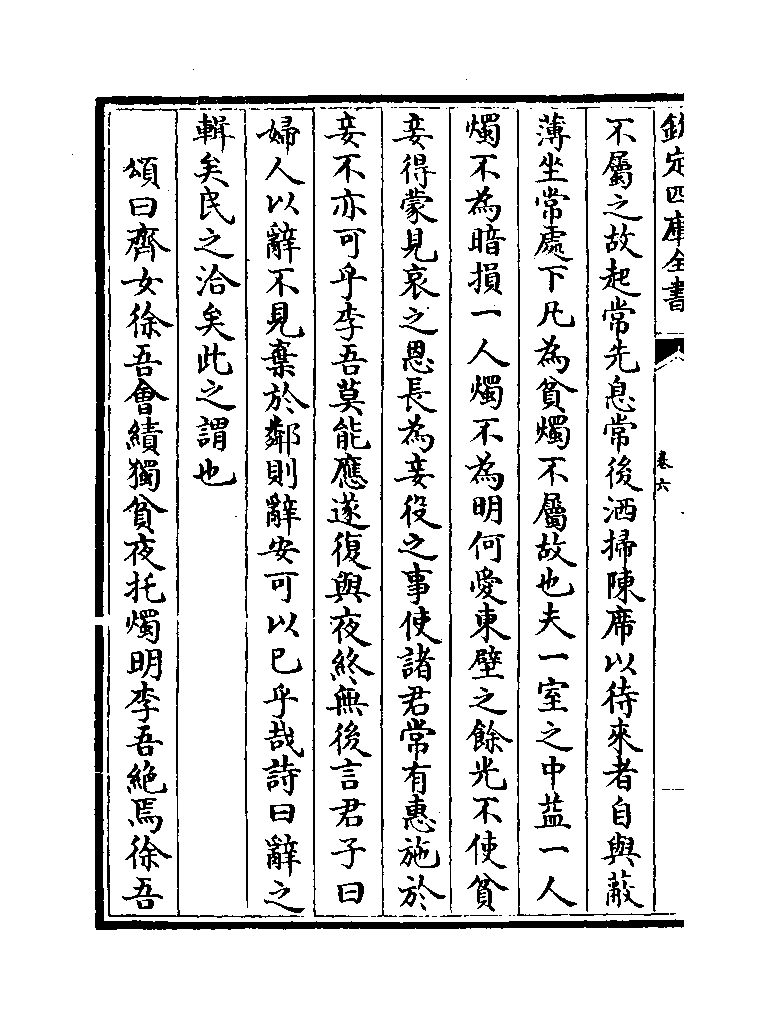 欽定四庫全書
卷六
不屬之故起常先息常後洒掃陳席以待來者自與蔽
薄坐常處下凡為貧燭不屬故也夫一室之中益一人
燭不為暗損一人燭不為明何愛東壁之餘光不使貧
妾得蒙見哀之恩長為妾役之事使諸君常有惠施於
妾不亦可乎李吾莫能應遂復與夜終無後言君子曰
婦人以辭不見棄於鄰則辭安可以已乎哉詩曰辭之
輯矣民之洽矣此之謂也
頌曰齊女徐吾會績獨貧夜托燭明李吾絶焉徐吾